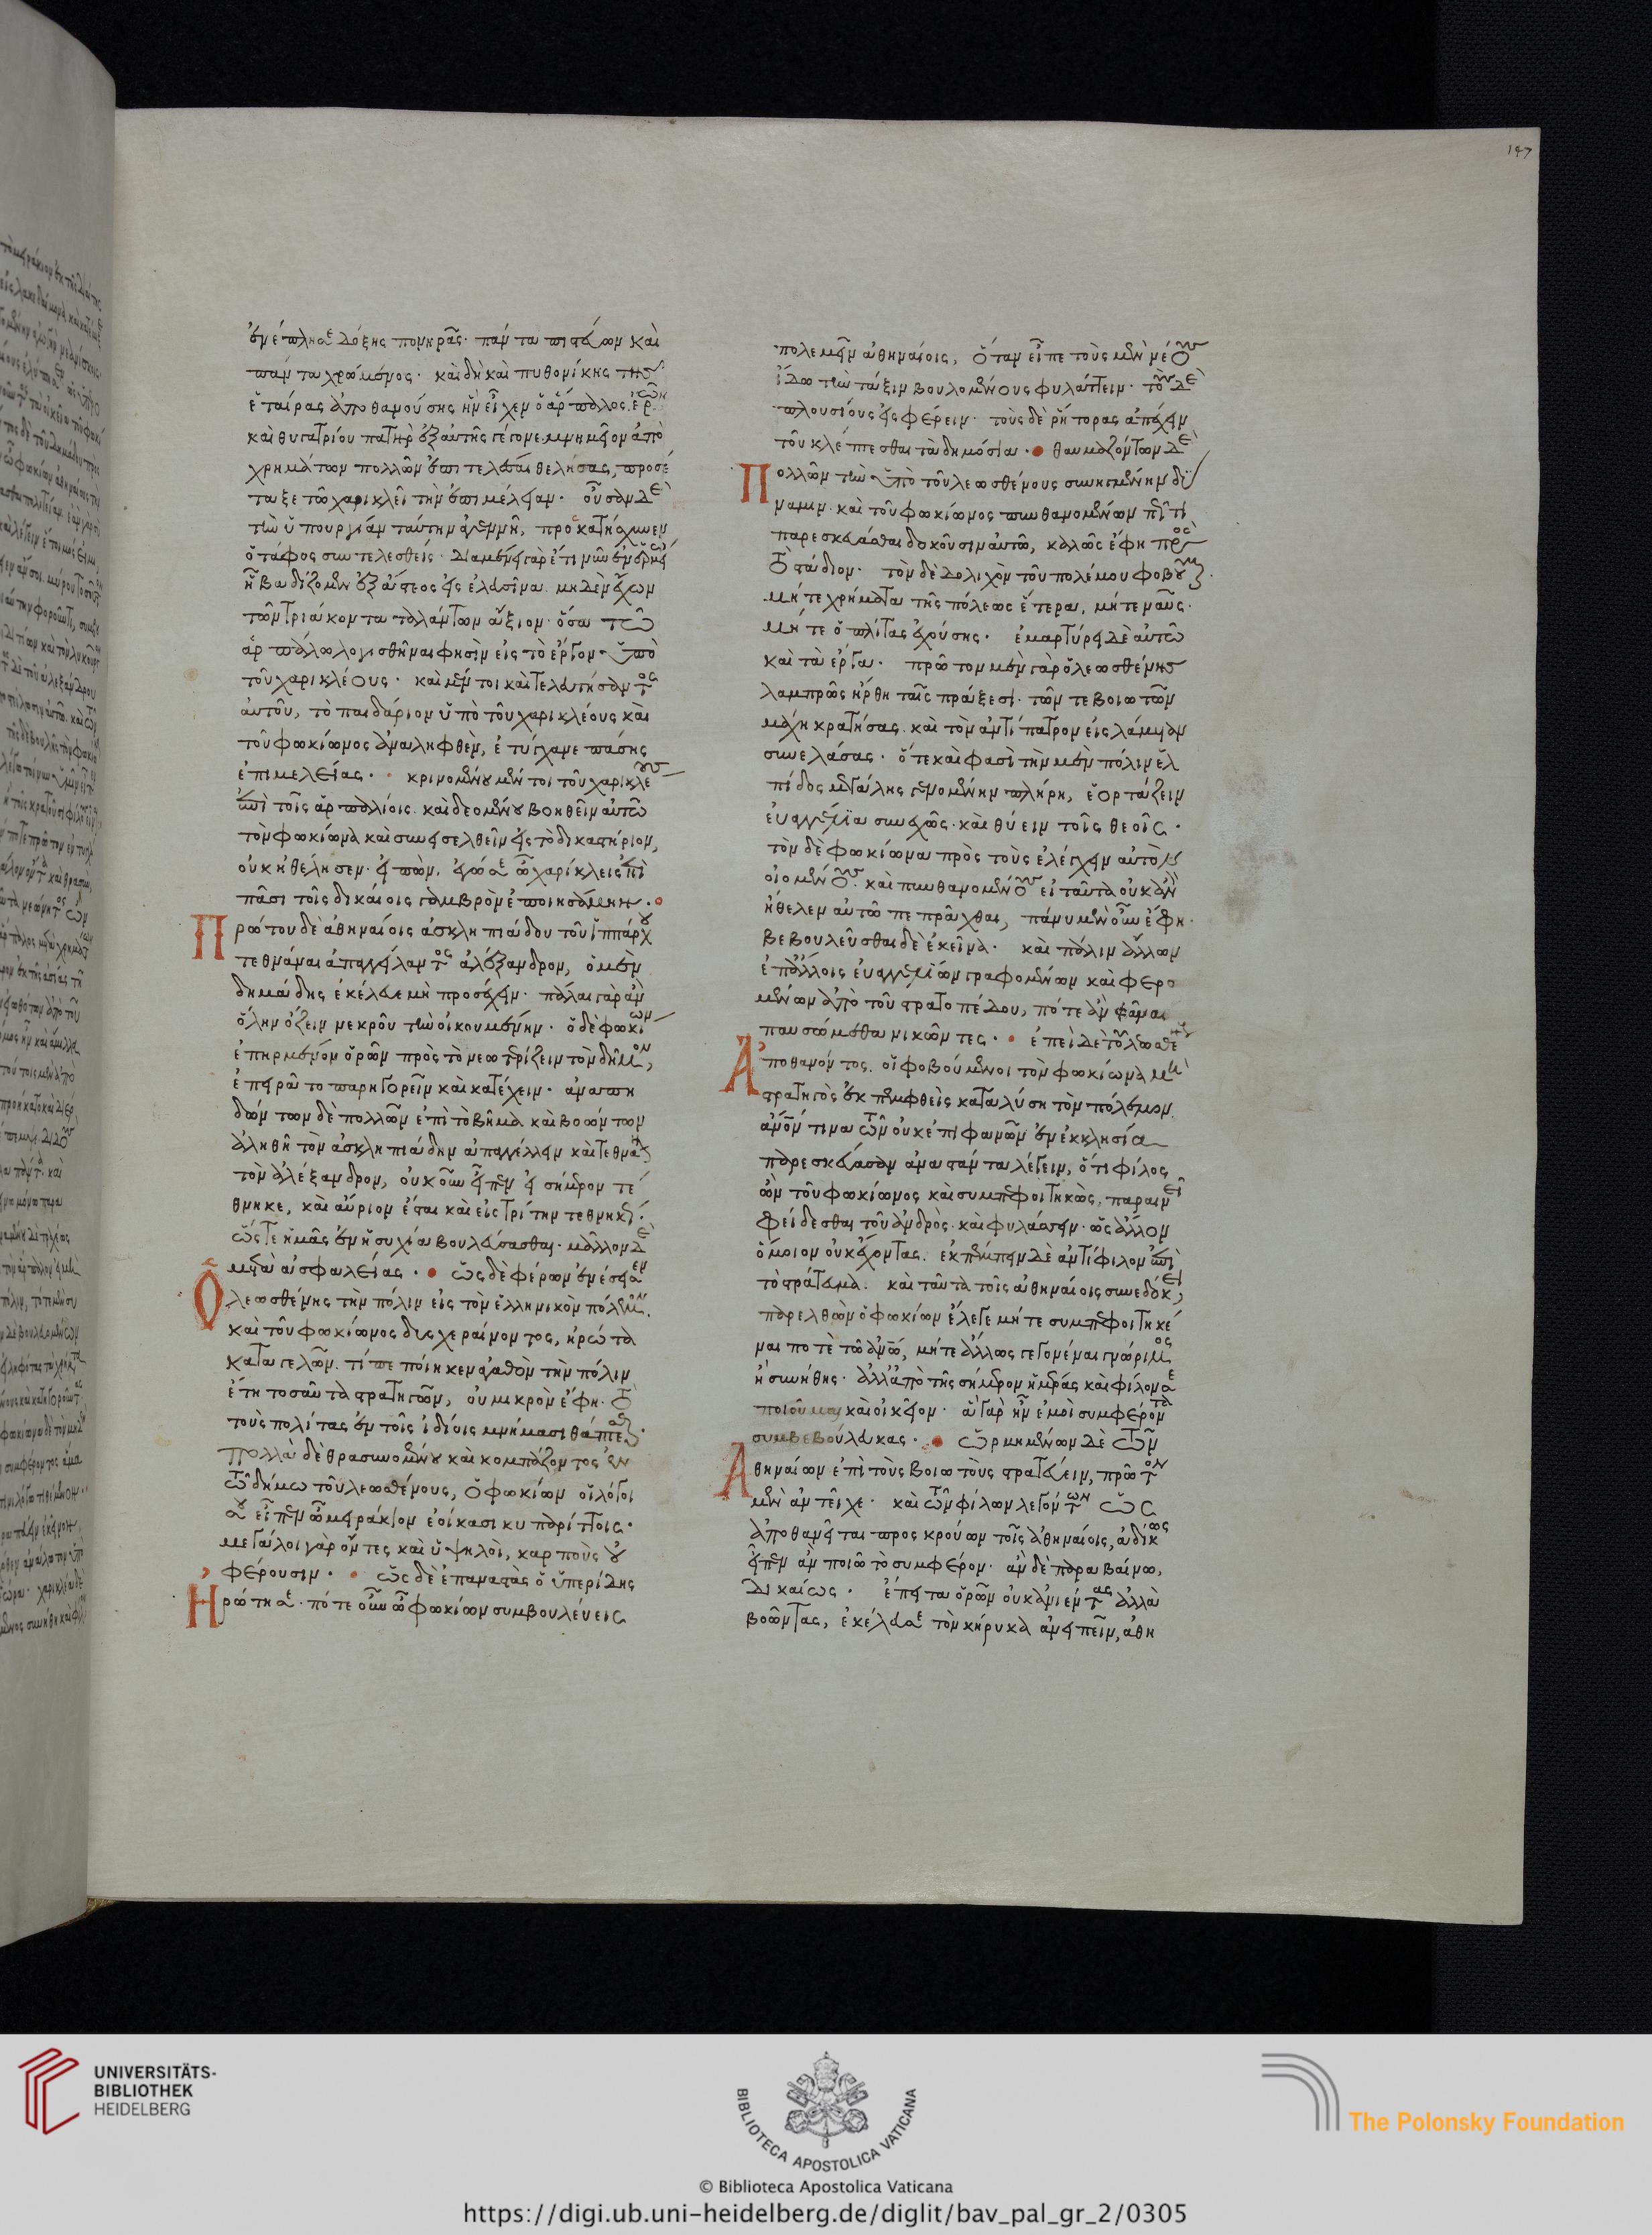 ἐνέπλησε δόξης πονηρᾶς· πάντα πιστεύων καὶ
πάντα χρώμενος· καὶ δὴ καὶ πυθονίκης τῆς
ἑταίρας ἀποθανούσης ἣν εἶχεν ὁ ἅρπαλος ἐρῶν
καὶ θυγατρίου πατὴρ ἐξ αὐτῆς γέγονε. μνημεῖον ἀπὸ
χρημάτων πολλῶν ἐπιτελέσαι θελήσας, προσέ
ταξε τῶ χαρικλεῖ τὴν ἐπιμέλειαν· οὖσαν δὲ
τὴν ὑπουργίαν ταύτην ἀγεννῆ, προσκατήσχυνεν
ὁ τάφος συντελεσθείς· διαμένει γὰρ ἔτι νῦν ἐν ἑρμεί
ἧ βαδίζομεν ἐξ ἄστεος εἰς ἐλευσῖνα. μηδὲν ἔχων
τῶν τριάκοντα ταλάντων ἄξιον· ὅσα τῶ
ἁρπάλω λογισθῆναι φησὶν εἰς τὸ ἔργον ὑπὸ
τοῦ χαρικλέους· καὶ μέντοι καὶ τελευτήσαντος
αὐτοῦ, τὸ παιδάριον ὑπὸ τοῦ χαρικλέους καὶ
τοῦ φωκίωνος ἀναληφθὲν, ἐτύγχανε πάσης
ἐπιμελείας· κρινομένου μέντοι τοῦ χαρικλέους
ἐπὶ τοῖς ἁρπαλίοις. καὶ δεομένου βοηθεῖν αὐτῶ
τὸν φωκίωνα καὶ συνεισελθεῖν εἰς τὸ δικαστήριον,
οὐκ ἠθέλησεν· εἰπὼν. ἐγώ σε ὦ χαρίκλεις ἐπὶ
πᾶσι τοῖς δικαίοις γαμβρὸν ἐποιησάμην·
Πρώτου δὲ ἀθηναίοις ἀσκληπιάδου τοῦ ἱππάρχου
τεθνάναι ἀπαγγείλαντος ἀλέξανδρον, ὁ μὲν
δημάδης ἐκέλευε μὴ προσέχειν· πάλαι γὰρ ἂν
ὅλην ὄζειν νεκροῦ τὴν οἰκουμένην· ὁ δὲ φωκίων
ἐπηρμένον ὁρῶν πρὸς τὸ νεωτερίζειν τὸν δῆμον,
ἐπειρᾶτο παρηγορεῖν καὶ κατέχειν· ἀναπη
δώντων δὲ πολλῶν ἐπὶ τὸ βῆμα καὶ βοώντων
ἀληθῆ τὸν ἀσκληπιάδην ἀπαγγέλλειν καὶ τεθνάναι
τὸν ἀλέξανδρον, οὐκοῦν εἶπεν εἰ σήμερον τέ
θνηκε, καὶ αὔριον ἔσται καὶ εἰς τρίτην τεθνηκώς·
ὥστε ἡμᾶς ἐν ἡσυχία βουλεύσασθαι· μᾶλλον δὲ
μετὰ ἀσφαλείας· ὡς δὲ φέρων ἐνέσεισεν
Ὁ λεωσθένης τὴν πόλιν εἰς τὸν ἑλληνικὸν πόλεμον.
καὶ τοῦ φωκίωνος δυσχεραίνοντος, ἠρώτα
καταγελῶν. τί πεποίηκεν ἀγαθὸν τὴν πόλιν
ἔτη τοσαῦτα στρατηγῶν, οὐ μικρὸν ἔφη· τὸ
τοὺς πολίτας ἐν τοῖς ἰδίοις μνήμασι θάπτεσθαι·
πολλὰ δὲ θρασυνομένου καὶ κομπάζοντος ἐν
τῶ δήμω τοῦ λεωσθένους, ὁ φωκίων οἱ λόγοι
σου εἶπεν ὦ μειράκιον ἐοίκασι κυπαρίττοις·
μεγάλοι γὰρ ὄντες καὶ ὑψηλοὶ, καρποὺς οὐ
φέρουσιν· ὡς δὲ ἐπαναστὰς ὁ ὑπερίδης
Ἠρώτησε· πότε οὖν ὦ φωκίων συμβουλεύεις
πολεμεῖν ἀθηναίοις, ὅταν εἶπε τοὺς μὲν νέους
ἴδω τὴν τάξιν βουλομένους φυλάττειν· τοὺς δὲ
πλουσίους εἰσφέρειν· τοὺς δὲ ῥήτορας ἀπέχειν
τοῦ κλέπτεσθαι τὰ δημόσια· θαυμαζόντων δὲ
Πολλῶν τὴν ὑπὸ τοῦ λεωσθένους συνηγμένην δύ
ναμιν· καὶ τοῦ φωκίωνος πυνθανομένων πῶς τι
παρεσκευάσθαι δοκοῦσιν αὐτῶ, καλῶς ἔφη πρὸς
τὸ στάδιον· τὸν δὲ δολιχὸν τοῦ πολέμου φοβοῦμαι·
μήτε χρήματα τῆς πόλεως ἕτερα, μήτε ναῦς·
μήτε ὁπλίτας ἐχούσης· ἐμαρτύρει δὲ αὐτῶ
καὶ τὰ ἔργα· πρῶτον μὲν γὰρ ὁ λεωσθένης
λαμπρῶς ἤρθη ταῖς πράξεσι· τῶν τε βοιωτῶν
μάχη κρατήσας. καὶ τὸν ἀντίπατρον εἰς λάμιαν
συνελάσας· ὅτε καὶ φασὶ τὴν μὲν πόλιν ἐλ
πίδος μεγάλης γενομένην πλήρη, ἑορτάζειν
εὐαγγέλια συνεχῶς· καὶ θύειν τοῖς θεοῖς·
τὸν δὲ φωκίωνα πρὸς τοὺς ἐλέγχειν αὐτὸν
οἰομένους· καὶ πυνθανομένους εἰ ταῦτα οὐκ ἂν
ἤθελεν αὐτῶ πεπρᾶχθαι, πάνυ μὲν οὖν ἔφη·
βεβουλεῦσθαι δὲ ἐκεῖνα· καὶ πάλιν ἄλλων
ἐπάλλοις εὐαγγελίων γραφομένων καὶ φερο
μένων ἀπὸ τοῦ στρατοπέδου, πότε ἂν φᾶναι
παυσώμεθα νικῶντες· ἐπεὶ δὲ τοῦ λεωσθένους
Ἀποθανόντος. οἱ φοβούμενοι τὸν φωκίωνα μὴ
στρατηγὸς ἐκπεμφθεὶς καταλύση τὸν πόλεμον.
ἄνθρωπόν τινα τῶν οὐκ ἐπιφανῶν ἐν ἐκκλησία
παρεσκεύασαν ἀναστάντα λέγειν, ὅτι φίλος
ὢν τοῦ φωκίωνος καὶ συμπεφοιτηκὼς, παραινεῖ
φείδεσθαι τοῦ ἀνδρὸς· καὶ φυλάττειν· ὡς ἄλλον
ὅμοιον οὐκ ἔχοντας. ἐκπέμπειν δὲ ἀντίφιλον ἐπὶ
τὸ στράτευμα. καὶ ταῦτα τοῖς ἀθηναίοις συνεδόκει,
παρελθὼν ὁ φωκίων ἔλεγε μήτε συμπεφοιτηκέ
ναι ποτὲ τῶ ἀνθρώπω, μήτε ἄλλως γεγονέναι γνώριμος
ἢ συνήθης· ἀλλ' ἀπὸ τῆς σήμερον ἡμέρας καὶ φίλον σε
ποιοῦμαι καὶ οἰκεῖον· ἃ γὰρ ἦν ἐμοὶ συμφέροντα
συμβεβούλευκας· ὡρμημένων δὲ τῶν
Ἀθηναίων ἐπὶ τοὺς βοιωτοὺς στρατεύειν, πρῶτον
μὲν ἀντεῖχε· καὶ τῶν φίλων λεγόντων ὡς
ἀποθανεῖται προσκρούων τοῖς ἀθηναίοις, ἀδίκως
εἶπεν ἂν ποιῶ τὸ συμφέρον· ἂν δὲ παραβαίνω,
δικαίως· ἔπειτα ὁρῶν οὐκ ἀνιέντας ἀλλὰ
βοῶντας, ἐκέλευσε τὸν κήρυκα ἀνειπεῖν, ἀθη
197
UNIVERSITÄTS-
BIBLIOTHEK
HEIDELBERG
BIBLIOTECA APOSTOLICA VATICANA
The Polonsky Foundation
© Biblioteca Apostolica Vaticana
https://digi.ub.uni-heidelberg.de/diglit/bav_pal_gr_2/0305